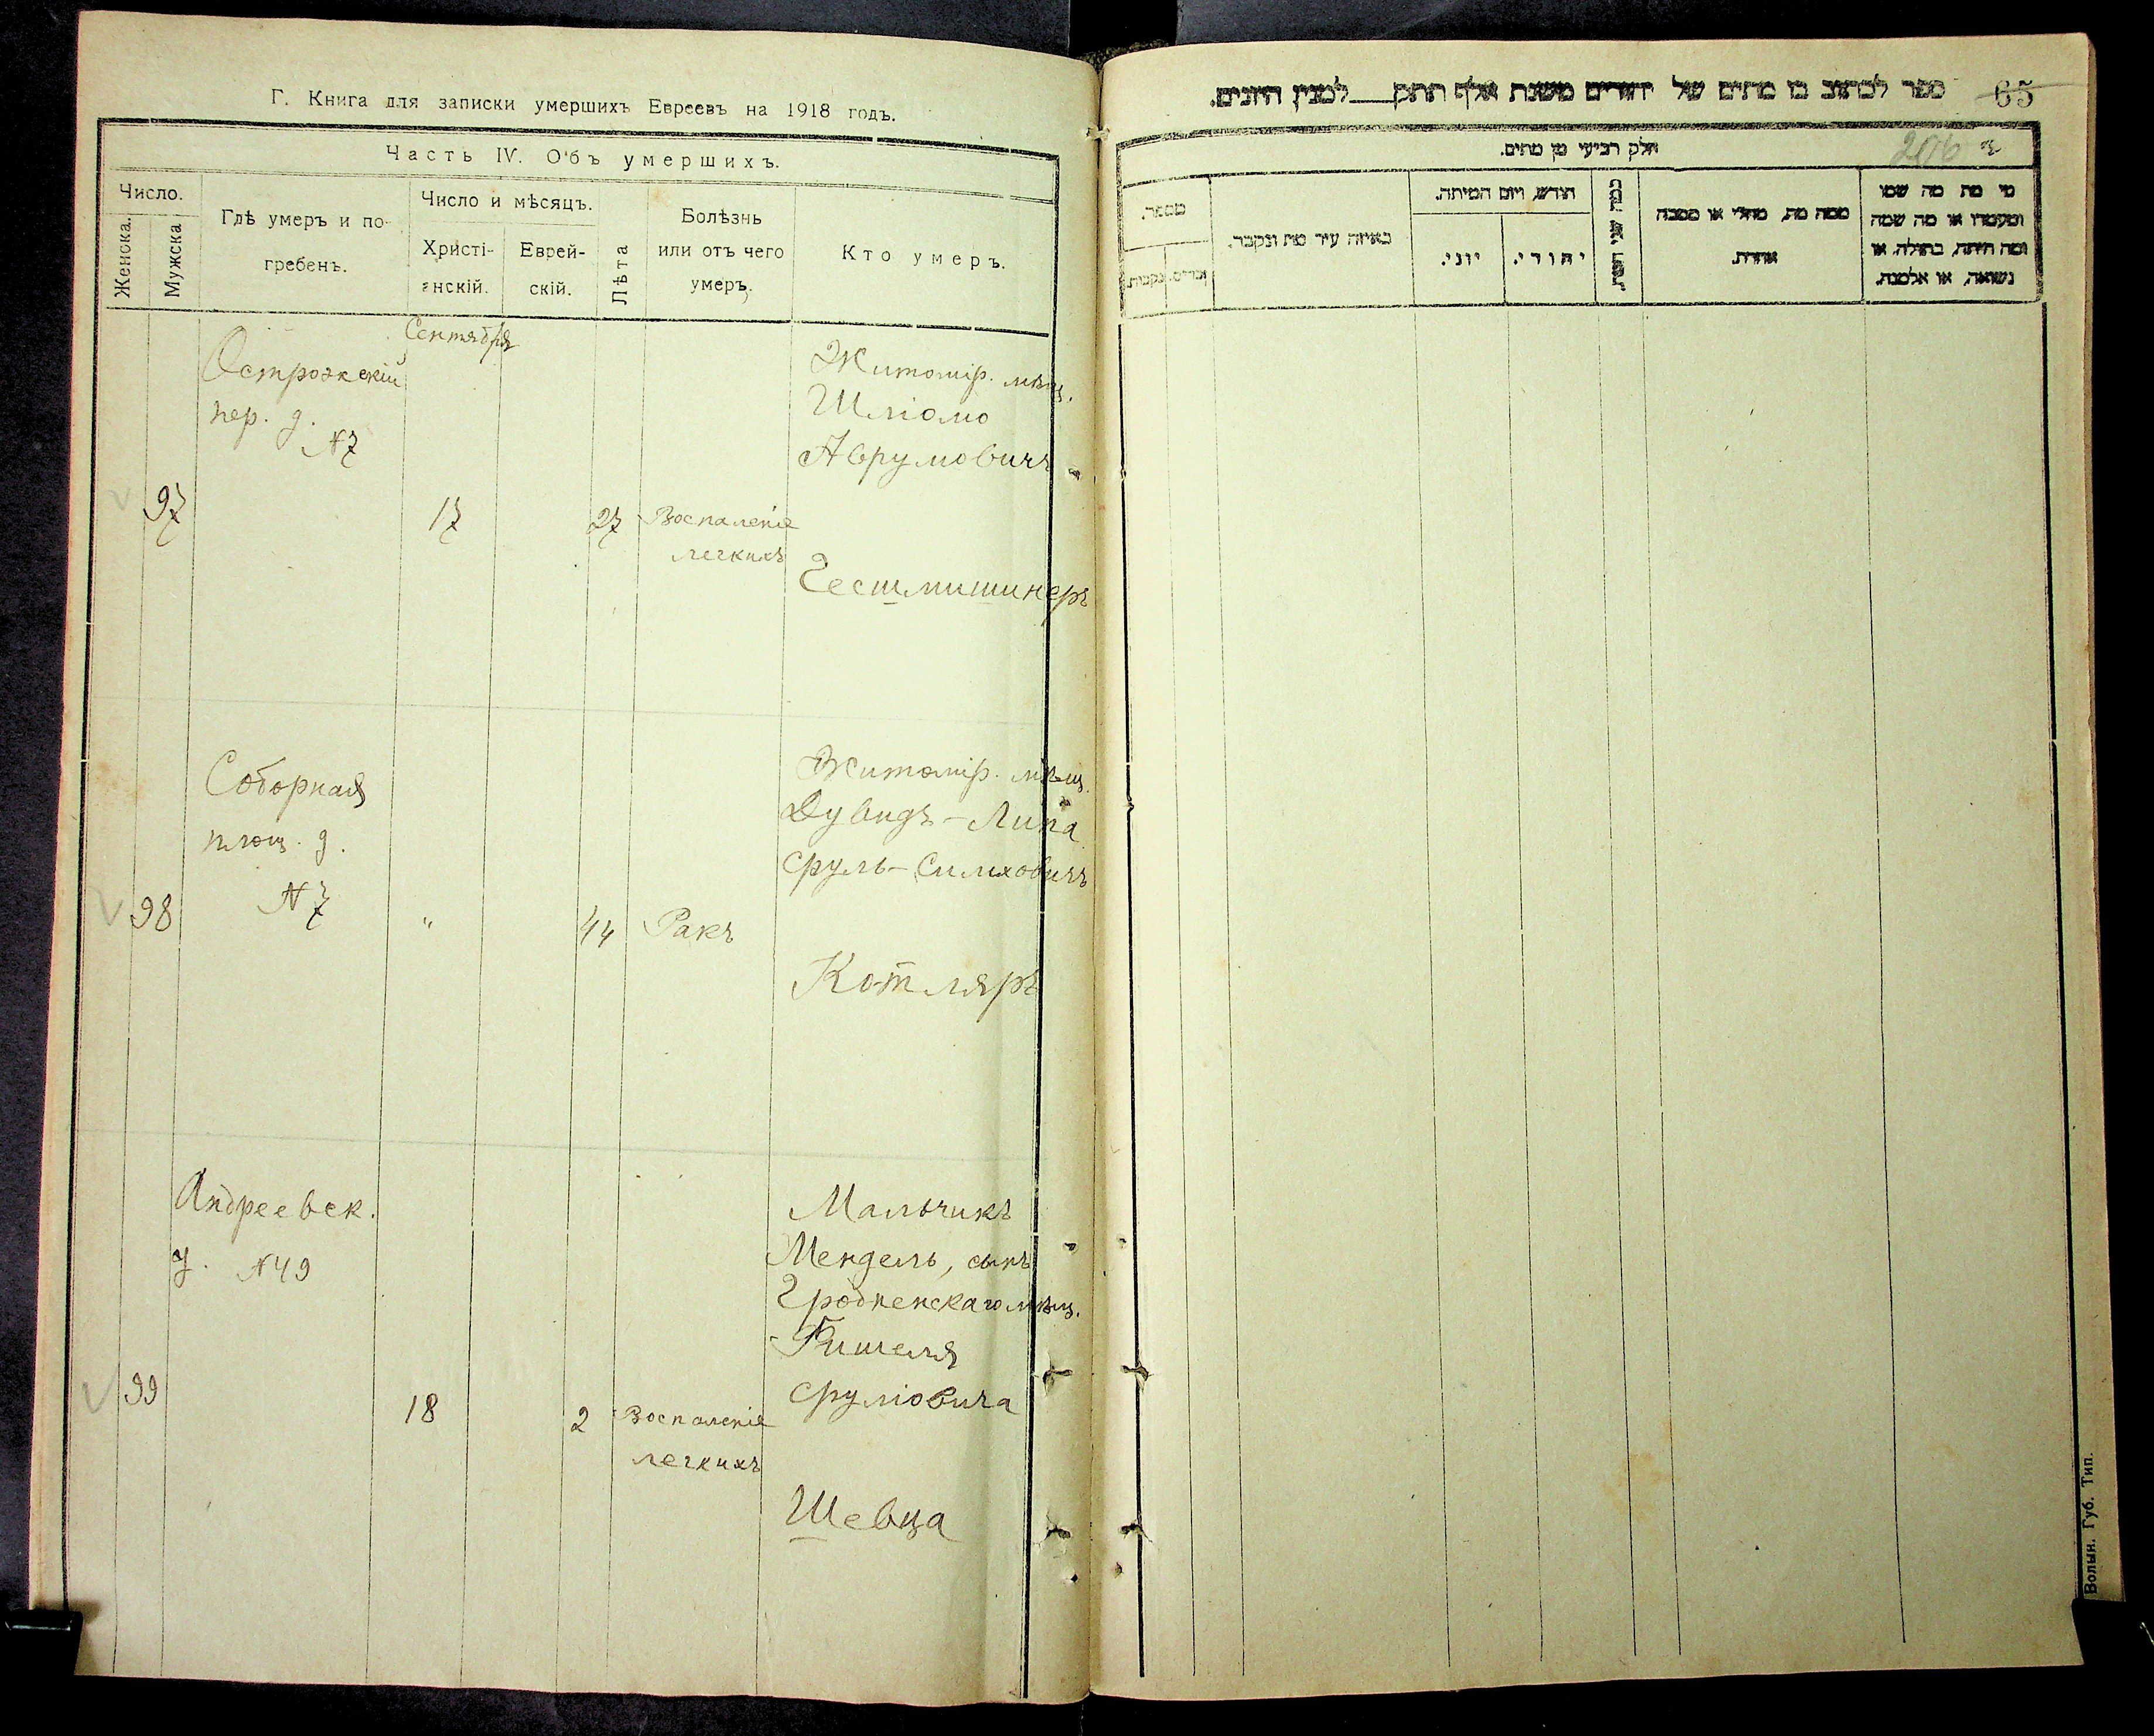 Г. Книга для записки умершихъ Евреевъ на 1918 годъ.
Часть IV. Объ умершихъ.
Число.
Женска.
Мужска
Гдѣ умеръ и по-
гребенъ.
Число и мѣсяцъ.
Христі-
анскій.
Еврей-
скій.
Лѣта
Болѣзнь
или отъ чего
умеръ.
Кто умеръ.
Сентября
Острожскій
пер. д.
№7
97
17
27
Воспаленіе
легкихъ
Житомір. мѣщ.
Шліомо
Аврумовичъ
Соборная
площ. д.
№7
98
"
44
Ракъ
Житомір. мѣщ.
Дувидъ-Липа
Сруль-
Котляръ
Андреевск.
№49
99
18
2
Воспаленіе
легкихъ
Мальчикъ
Мендель, сынъ
Гродненскаго мѣщ.
Фишеля
Сруліовича
Шевца
ספר לכתוב בו מתים של יהודים משנת אלף תתק למנין היונים.
65
206
חלק רביעי מן מתים.
מספר.
זכרים.
נקבות.
באיזה עיר מת ונקבר.
חודש, ויום המיתה.
יוני.
יהודי.
ממה מת, מחלי או מסבה
אחרת.
מי מת מה שמו
ומעמדו או מה שמה
ומה היתה, בתולה, או
נשואה, או אלמנה.
Волын. Губ. Тип.